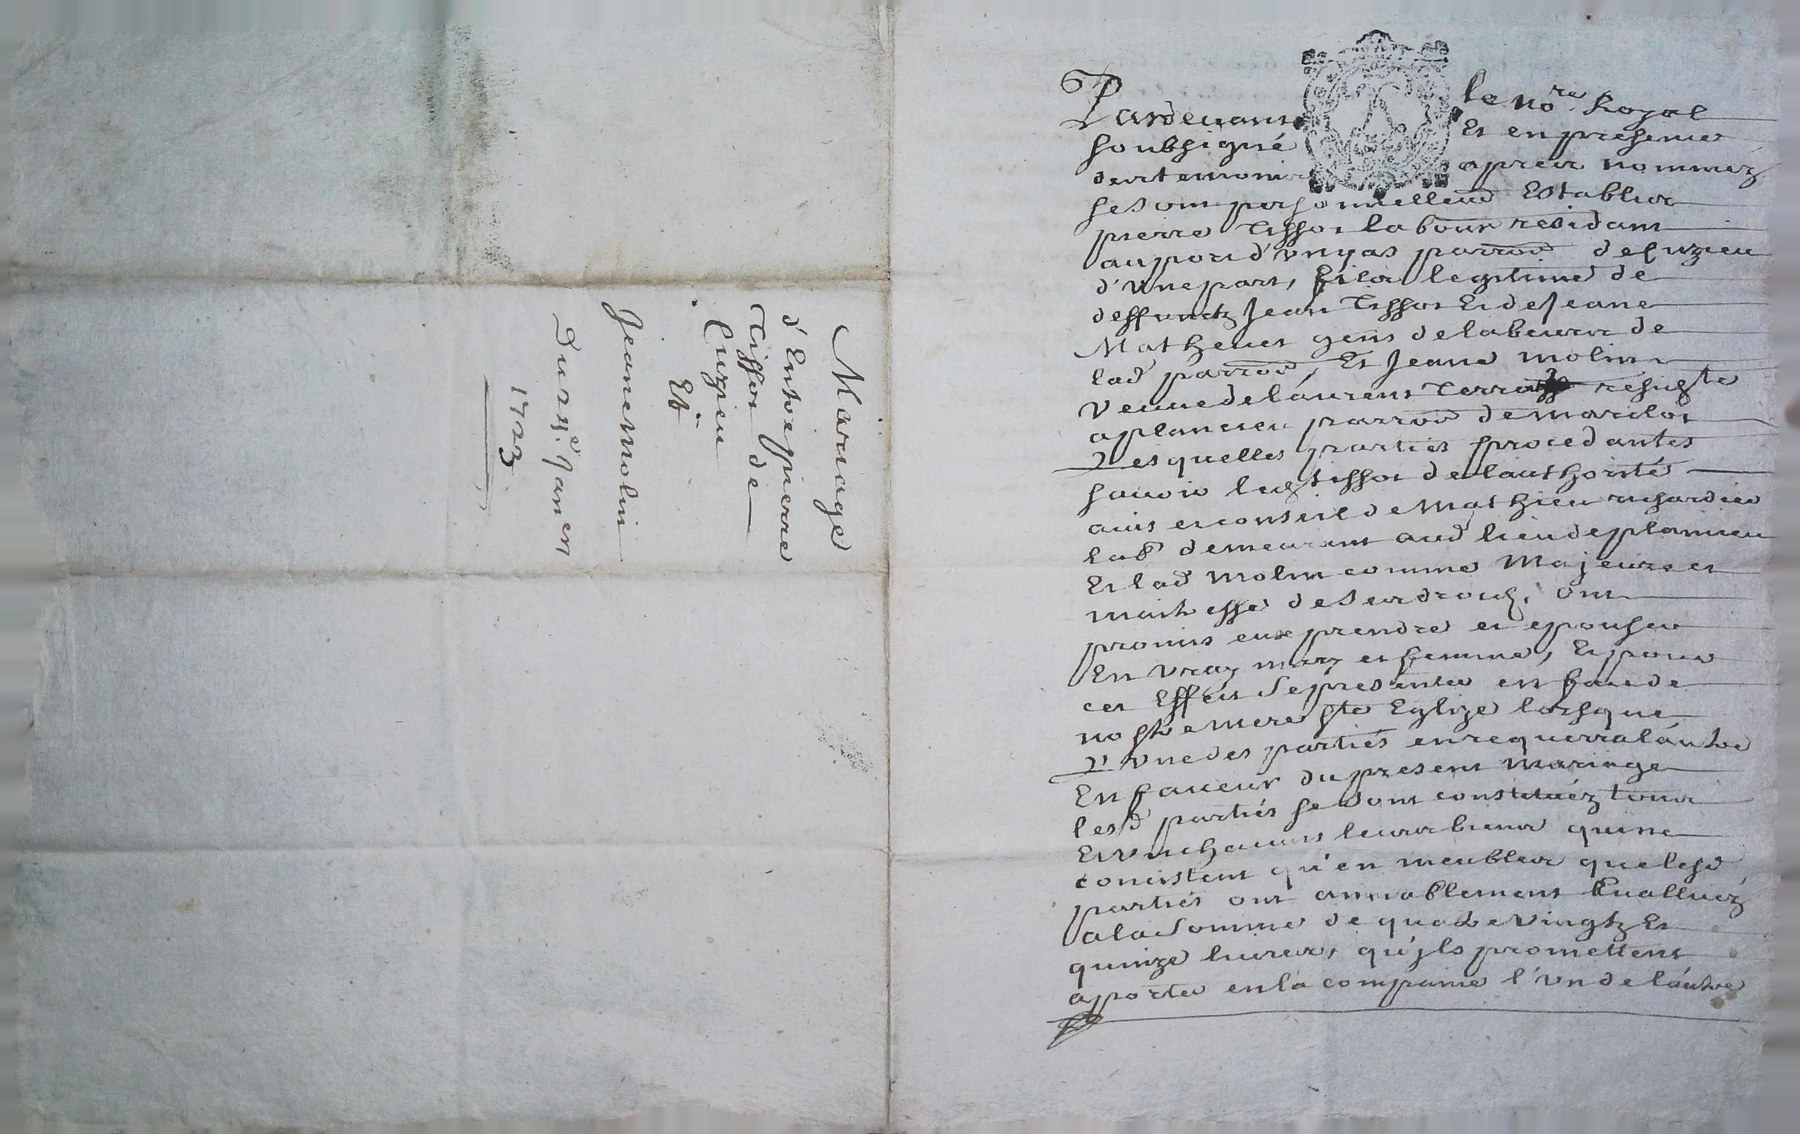 Mariage
d'Entre pierre
Tissot de
Cuzieu
Et
Jeanne Molin
Du 25e. Janer
1723
Pardevant le nore. Royal
soubsigné Et en presence
des temoins apres nommez
se sont personnellemt Establis
pierre Tissot labour residant
au port d'unyas parroe de Cuzieu
d'vne part, fils legitime de
deffunctz Jean Tissot Et de Jeane
Mathevet gens de labeur de
lad parroe, Et Jeane Molin
veuve de laurens residte
a plancieu parroe de marclot
Lesquelles parties procedantes
savoir led tissot de lauthorité
avis et conseil de Mathieu richardier
lab demeurant aud lieu de plancieu
Et lad Molin comme Majeure et
maitresse de ses droitz, ont
promis eux prendre et epouser
En vray mary et femme, Et pour
cet Effect se presenter en face de
nostre mere ste Eglize lorsque
L'vne des parties en requerra lautre
En faveur du present mariage
lesd parties se sont constituéz tous
Et vn chacuns leurs biens qui ne
concistent qu'en meubles que lesd
parties ont amiablement Evalluéz
a la somme de quatre vingtz Et
quinze livres, qu'jls promettent
aporter en la compagnie l'vn de lautre